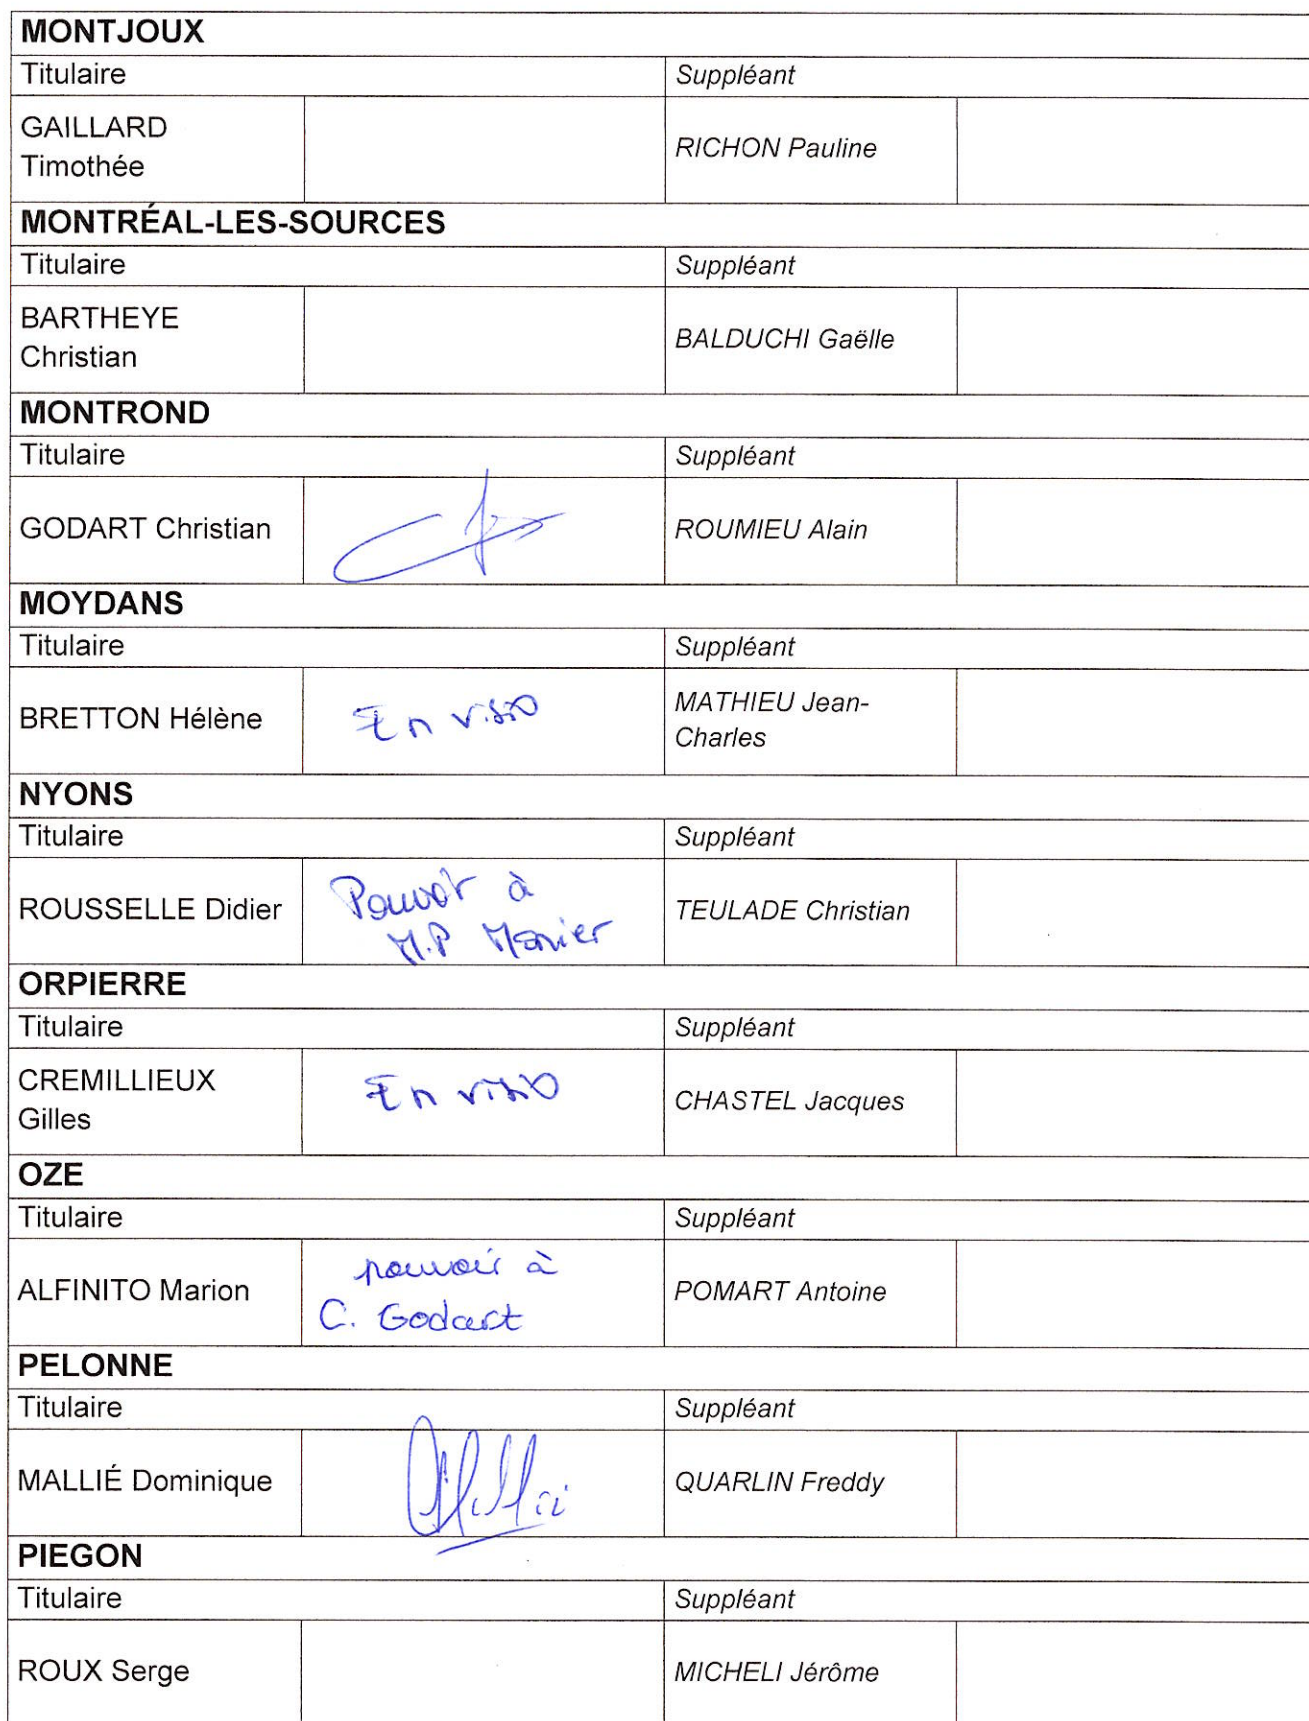 MONTJOUX
Titulaire Suppléant
GAILLARD
Timothée
RICHON Pauline
MONTRÉAL-LES-SOURCES
Titulaire Suppléant
BARTHEYE
Christian
BALDUCHI Gaëlle
MONTROND
Titulaire Suppléant
GODART Christian ROUMIEU Alain
MOYDANS
Titulaire Suppléant
BRETTON Hélène En visio
MATHIEU Jean-
Charles
NYONS
Titulaire Suppléant
ROUSSELLE Didier
Pouvoir à
M.P Monier
TEULADE Christian
ORPIERRE
Titulaire Suppléant
CREMILLIEUX
Gilles
En visio
CHASTEL Jacques
OZE
Titulaire Suppléant
ALFINITO Marion
pouvoir à
C. Godart
POMART Antoine
PELONNE
Titulaire Suppléant
MALLIÉ Dominique QUARLIN Freddy
PIEGON
Titulaire Suppléant
ROUX Serge MICHELI Jérôme